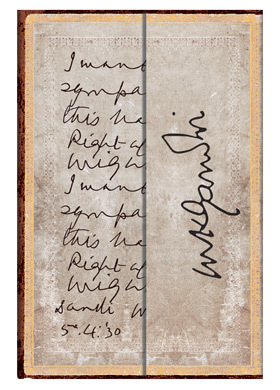 I want
sympa
this ba
Right ag
Might
I want
sympa
this ba
Right ag
Might
Dandi M
5.4.'30
MKGandhi